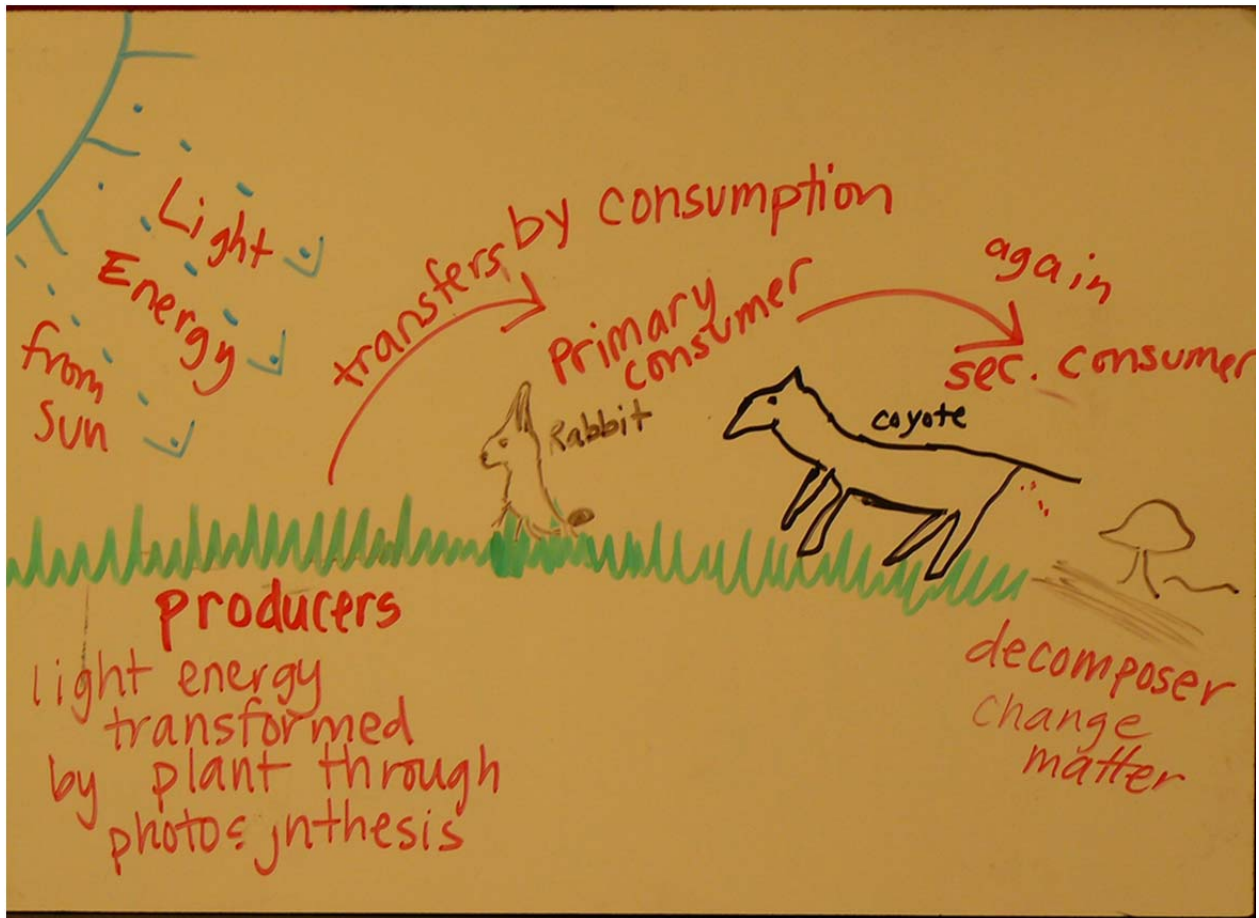 Light
Energy
from
sun
transfers by consumption
Primary
consumer
Rabbit
again
sec. consumer
coyote
producers
light energy
transformed
by plant through
photosynthesis
decomposer
change
matter